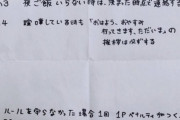 3 夜ご飯いらない時は、決まった時点で連絡する
4 喧嘩している時も「おはよう、おやすみ
行ってきます、ただいま」の
挨拶は必ずする
ルールを守らなかった場合1回 1Pペナルティがつく